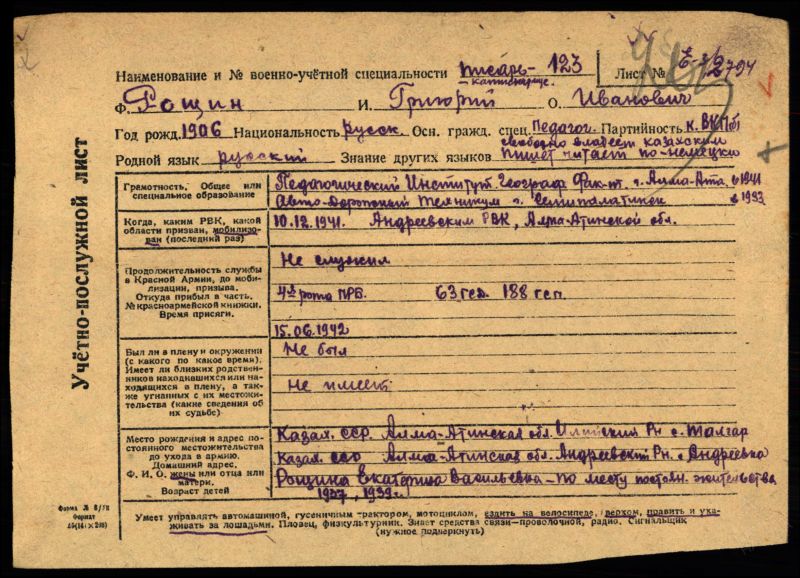 Наименование и № военно-учётной специальности писарь- 123
Лист № 2794
Ф. Рощин И. Григорий О. Иванович
Год рожд. 1906 Национальность Русск. Осн. гражд. спец. Педагог. Партийность К. ВКПб
свободно владеет казахским
Родной язык русский Знание других языков пишет читает по-немецки
Учётно-послужной лист
Грамотность. Общее или специальное образование
Педагогический Институт Географ Фак-т. г. Алма-Ата. в 1941
Авто-Дорожный техникум г. Семипалатинск в 1933
Когда, каким РВК, какой области призван, мобилизован (последний раз)
10.12.1941. Андреевским РВК, Алма-Атинской обл.
Продолжительность службы в Красной Армии, до мобилизации, призыва. Откуда прибыл в часть. № красноармейской книжки. Время присяги.
Не служил
4я рота ПРБ. 63 гсд. 188 гсп.
15.06.1942
Был ли в плену и окружении (с какого по какое время). Имеет ли близких родственников находившихся или находящихся в плену, а также угнанных с их местожительства (какие сведения об их судьбе)
Не был
Не имеет
Место рождения и адрес постоянного местожительства до ухода в армию. Домашний адрес. Ф. И. О. жены или отца или матери. Возраст детей
Казах. ССР. Алма-Атинская обл. Илийский Рн с. Талгар
Казах. ССР Алма-Атинская обл. Андреевский Рн. с Андреевка
Рощина Екатерина Васильевна - по месту постоян. жительства
1937, 1939 г.
Форма № 6/УК
Формат
Умеет управлять автомашиной, гусеничным трактором, мотоциклом, ездить на велосипеде, верхом, править и ухаживать за лошадьми. Пловец, физкультурник. Знает средства связи—проволочной, радио. Сигнальщик
(нужное подчеркнуть)